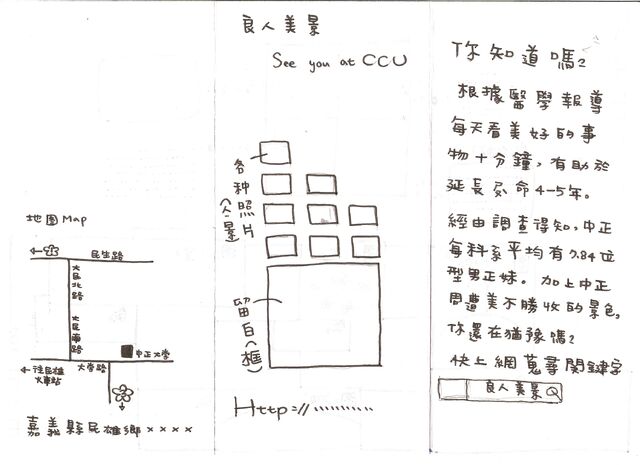 地圖 Map
民生路
大民北路
大民南路
中正大學
大學路
往民雄
火車站
嘉義縣民雄鄉××××
良人美景
See you at CCU
各種照片(人、景)
留白(框)
Http://············
你知道嗎?
根據醫學報導
每天看美好的事
物十分鐘,有助於
延長壽命4-5年。
經由調查得知,中正
每科系平均有7.84位
型男正妹。加上中正
周遭美不勝收的景色,
你還在猶豫嗎?
快上網蒐尋関鍵字
良人美景